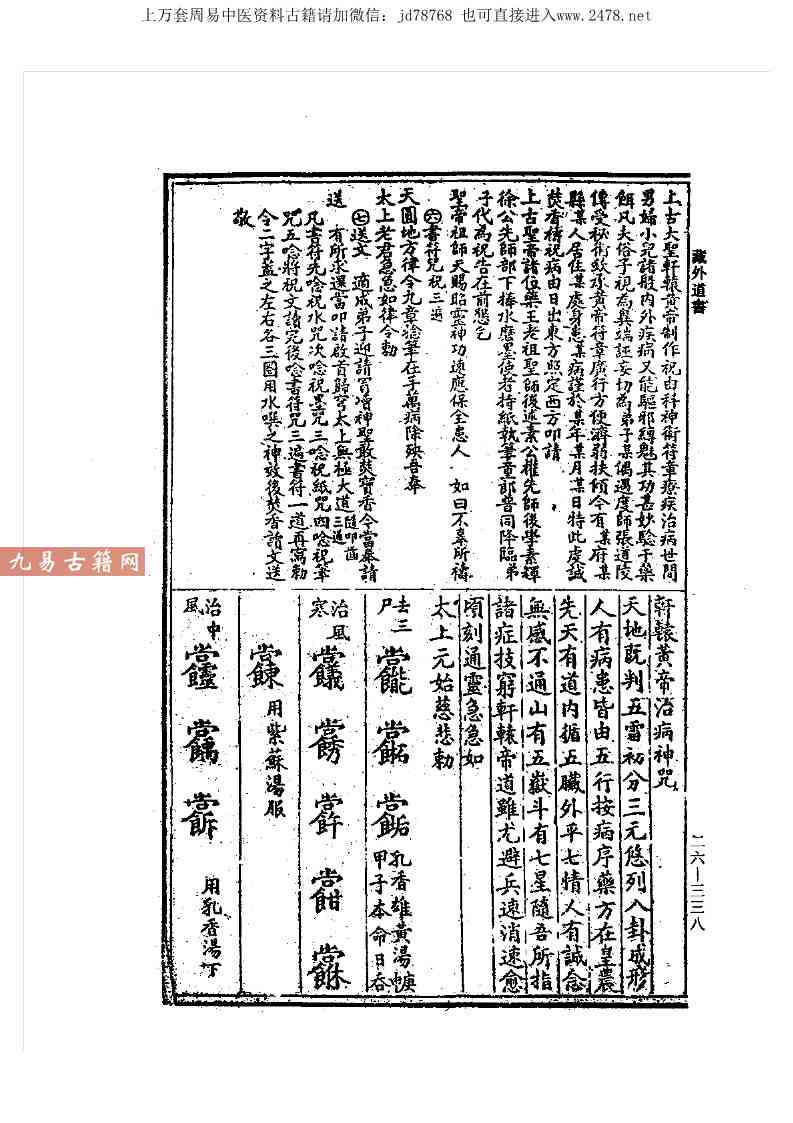 上万套周易中医资料古籍请加微信：jd78768 也可直接进入www.2478.net
藏外道書
上古大聖軒轅黃帝制作祝由科神術符章療疾治病世間
男婦小兒諸般內外疾病又能驅邪縛魅其功甚妙驗于藥
餌凡夫俗子視為異端誑妄切為弟子某偶遇度師張道陵
傳受秘術欽承黃帝符章廣行方便濟弱扶傾今有某府某
縣某人居住某處身患某病謹於某年某月某日特此虔誠
焚香禱祝病由日出東方照定西方叩請
上古聖帝諸位藥王老祖聖師後述素公權先師後學素輝
徐公先師部下捧水磨墨使者持紙執筆童郎普同降臨弟
子代為祝告在前懇乞
聖帝祖師天賜昭靈神功速應保全患人　如曰不辜所禱
㊅書符咒祝三遍
天圓地方律令九章捻筆在手萬病除殃吾奉
太上老君急急如律令勅
㊆送文　適成弟子迎請神聖敢焚寶香今當奉請
送　有所求還當叩請啟首歸穹太上無極大道三遍隨叩
凡書符先唸祝水咒次唸祝墨咒三唸祝紙咒四唸祝筆
咒五唸將祝文讀完後唸書符咒三遍書符一道再寫勅
令二字蓋之左右各三圈用水噀之神效後焚香讀文送
敬
軒轅黃帝治病神咒
天地既判五雷初分三元悠列八卦成形
人有病患皆由五行按病序藥方在皇農
先天有道內循五臟外平七情人有誠念
無感不通山有五嶽斗有七星隨吾所指
諸症技窮軒轅帝道雖尤避兵速消速愈
頃刻通靈急急如
太上元始慈悲勅
去三尸
乳香雄黃湯
甲子本命日吞
治風寒
用紫蘇湯服
治中風
用乳香湯下
二六—三三八
九易古籍网